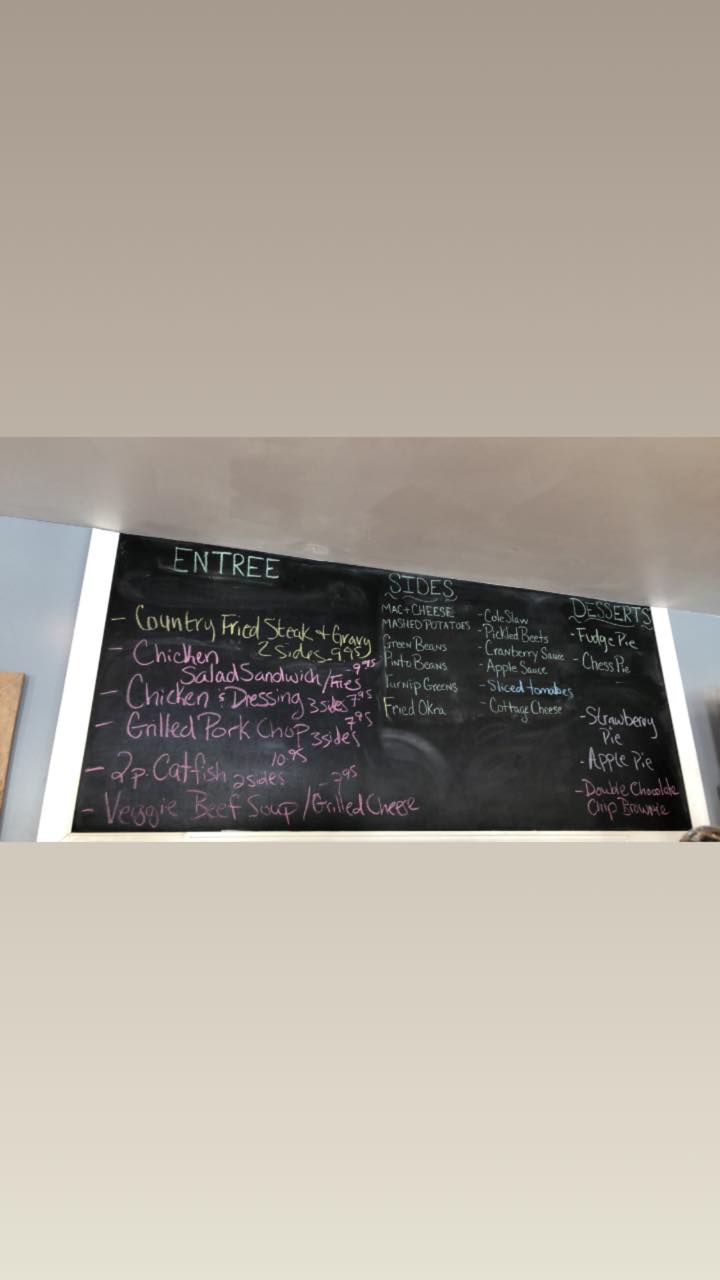 ENTREE
- Country Fried Steak + Gravy
2 Sides 9.95
- Chicken
Salad Sandwich/Fries 9.95
- Chicken & Dressing 3 sides 7.95
- Grilled Pork Chop 3 sides 7.95
10.95
- 2p. Catfish 2 sides
- Veggie Beef Soup / Grilled Cheese
SIDES
MAC + CHEESE
MASHED POTATOES
Green Beans
Pinto Beans
Turnip Greens
Fried Okra
- Cole Slaw
- Pickled Beets
- Cranberry Sauce
- Apple Sauce
- Sliced tomatoes
- Cottage Cheese
DESSERTS
- Fudge Pie
- Chess Pie
- Strawberry
Pie
- Apple Pie
- Double Chocolate
Chip Brownie